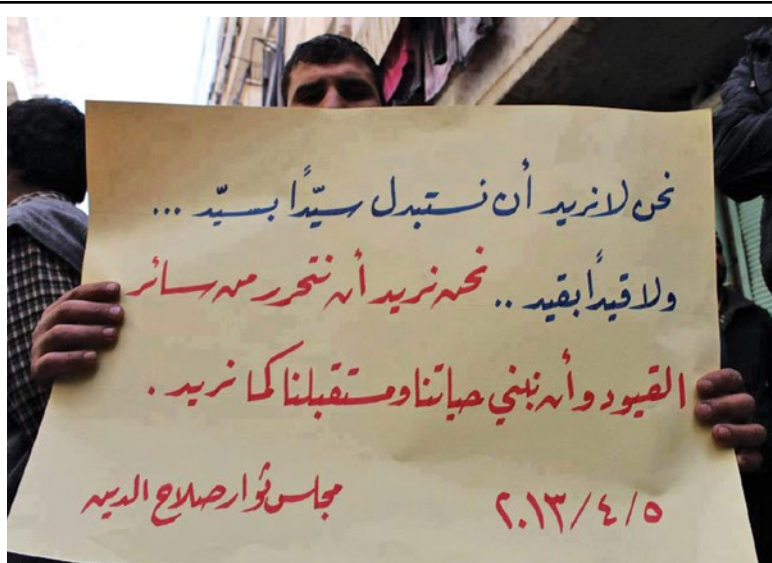 نحن لا نريد أن نستبدل سيّدًا بسيّد ...
ولا قيدًا بقيد .. نحن نريد أن نتحرر من سائر
القيود وأن نبني حياتنا ومستقبلنا كما نريد .
٢٠١٣/٤/٥ مجلس ثوار صلاح الدين